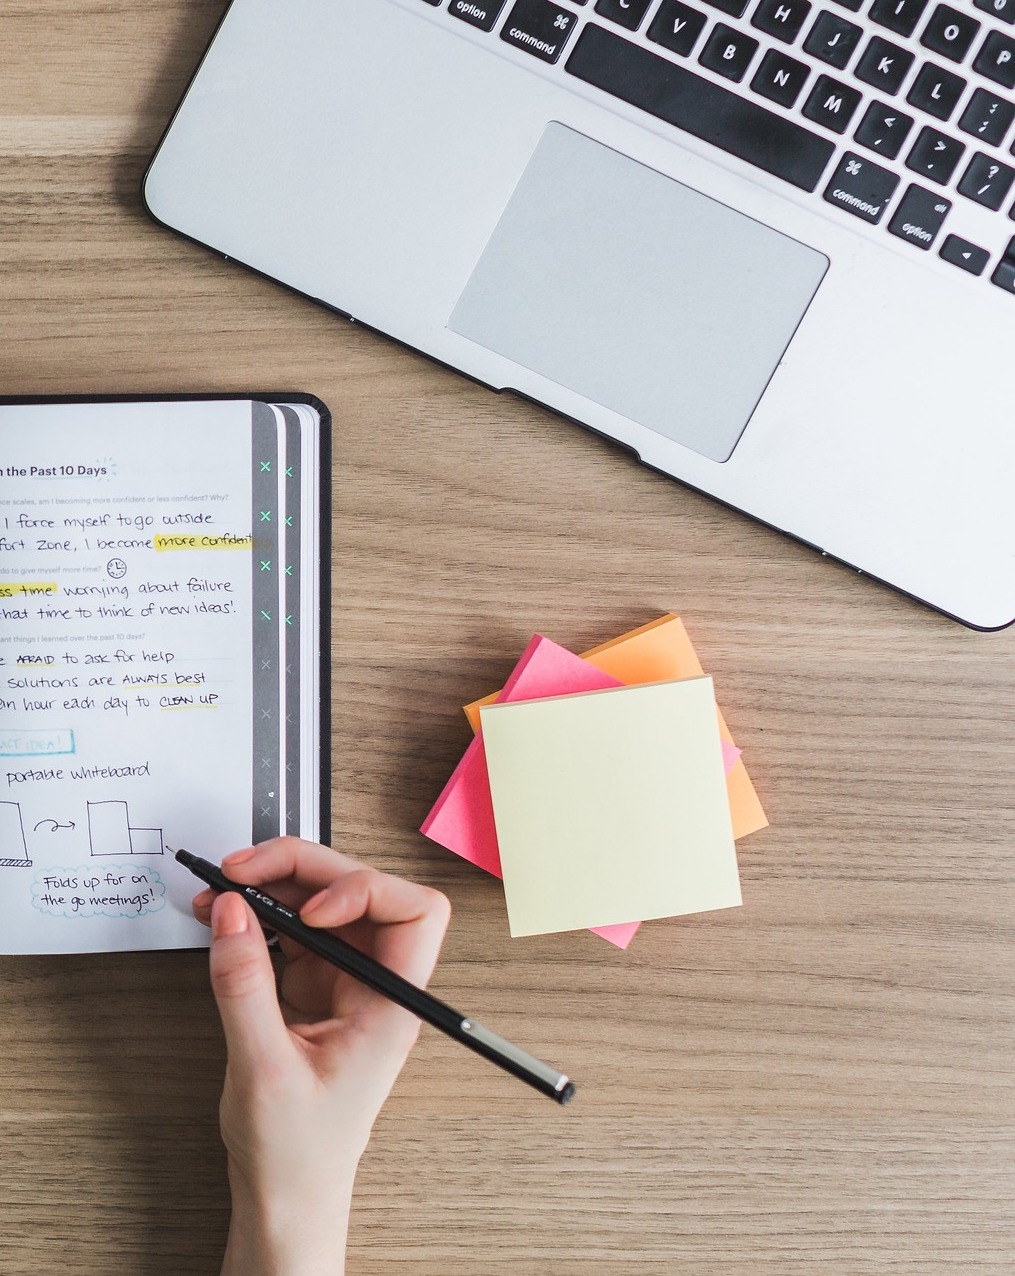 option
⌘
command
C
V
B
N
M
H
J
K
L
I
O
P
:
;
<
,
>
.
?
/
⌘
command
alt
option
◀
the Past 10 Days
scales, am I becoming more confident or less confident? Why?
I force myself to go outside
zone, I become more confident
do to give myself more time?
time worrying about failure
that time to think of new ideas!
things I learned over the past 10 days?
AFRAID to ask for help
solutions are ALWAYS best
hour each day to CLEAN UP
IDEA!
portable whiteboard
Folds up for on
the go meetings!